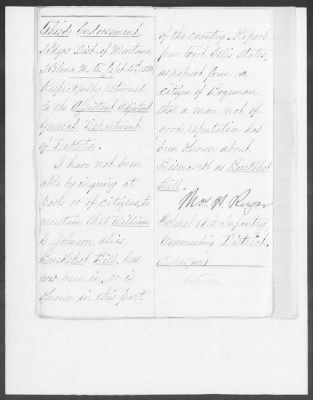 Third Endorsement.
Hdqrs Dist. of Montana
Helena, M. T. Sept 6th,
Respectfully returned
to the Assistant Adjutant
General, Department
of Dakota.
I have not been
able by inquiry at
posts or of citizens to
ascertain that William
A. Johnson alias
Buckshot Bill, has
ever been in, or is
known in this part
of the country. Report
from Fort Ellis states,
as report from a
citizen of Bozeman
that a man not of
good reputation has
been known about
Bismarck as Buckshot
Bill.
Thos. H. Ruger
Colonel 18th Infantry
Commanding District.